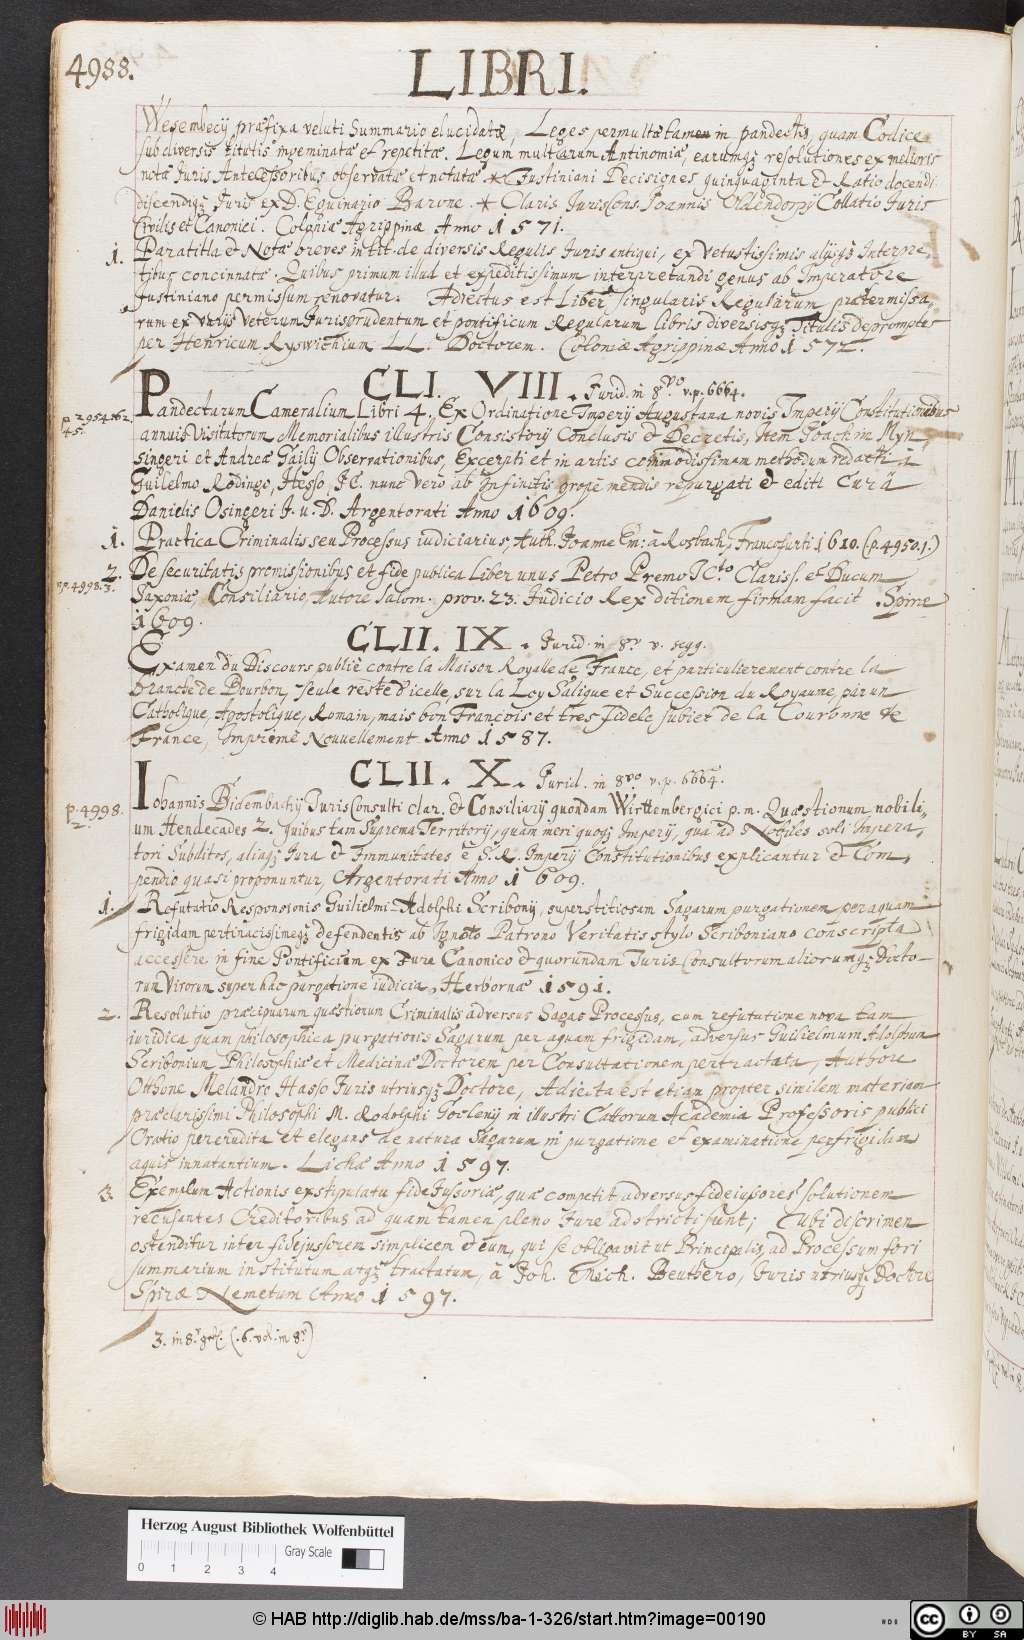 4988.
LIBRI.
Wesembecij præfixa veluti Summario elucidatæ, Leges permultæ tamen in pandectis, quam Codice
sub diversis titulis ingeminatæ et repetitæ. Legum multarum Antinomiæ, earumq; resolutiones ex melioris
notæ Juris Antecessoribus observatæ et notatæ * Justiniani Decisiones quinquaginta & Ratio docendi
discendiq; Juris ex D. Eguinario Barone. * Claris. Juriscons. Joannis Oldendorpij Collatio Juris
Civilis et Canonici. Coloniæ Agrippinæ Anno 1571.
1. Paratitla & Notæ breves in tit. de diversis Regulis Juris antiqui, ex vetustissimis ipsisq; Interpre,
tibus concinnatæ. Quibus primum illud et expeditissimum interpretandi genus ab Imperatore
Justiniano permissum renovatur. Adiectus est Liber singularis Regularum prætermissa,
rum ex varijs Veterum Jurisprudentum et pontificum Regularum libris diversisq; Titulis depromptus
per Henricum Ryswichium LL. Doctorem. Coloniæ Agrippinæ Anno 1572.
CLI. VIII. Jurid. in 8.vo v. p. 6664.
p. 2954. 162.
45.
Pandectarum Cameralium Libri 4. Ex Ordinatione Imperij Augustana novis Imperij Constitutionibus
annuis Visitatorum Memorialibus illustris Consistorij Conclusis & Decretis, Item Joachim Myn,
singeri et Andreæ Gailij Observationibus, Excerpti et in artis commodissimam methodum redacti à
Guilelmo Rodingo, Hesso JC. nunc vero ab Infinitis prope mendis repurgati & editi Cura
Danielis Osingeri J. u. D. Argentorati Anno 1609.
1. Practica Criminalis seu Processus iudiciarius, Auth. Joanne Em: à Rosbach, Francofurti 1610. (p. 4950. 1.)
2. De securitatis promissionibus et fide publica Liber unus Petro Premo JC.to Clariss. et Ducum
pp. 4998. 3.
Saxoniæ Consiliario, Autore Salom. prov. 23. Judicio Rex ditionem firmam facit. Spiræ
1609.
CLII. IX. Jurid. in 8.o v. seqq.
Examen du Discours publiè contre la Maison Royalle de France, et particulierement contre la
Branche de Bourbon, seule reste d'icelle, sur la Loy Salique et Succession du Royaume, par un
Catholique, Apostolique, Romain, mais bon François et tres fidele subiet de la Couronne de
France, Imprimé Nouvellement Anno 1587.
CLII. X. Jurid. in 8vo v. p. 6664.
p. 4998.
2.
Iohannis Bidembachij Juris Consulti clar. & Consiliarij quondam Wirttembergici p. m. Quæstionum nobili,
um Hendecades 2. quibus tam Suprema Territorij, quam meri quoq; Imperij, qua ad Nobiles soli Impera,
tori Subditos, aliaq; Jura & Immunitates è S. R. Imperij Constitutionibus explicantur & Com,
pendio quasi proponuntur, Argentorati Anno 1609.
1. Refutatio Responsionis Guilielmi Adolphi Scribonij, superstitiosam Sagarum purgationem, per aquam
frigidam pertinacissimeq; defendentis ab Ignoto Patrono Veritatis stylo Scriboniano conscripta
accessere in fine Pontificium ex Jure Canonico & quorundam Juris Consultorum aliorumq; Docto-
rum Virorum super hac purgatione iudicia, Herbornæ 1591.
2. Resolutio præcipuarum quæstionum Criminalis adversus Sagas Processus, cum refutatione nova tam
iuridica quam philosophica purgationis Sagarum per aquam frigidam, adversus Guilielmum Adolphum
Scribonium Philosophiæ et Medicinæ Doctorem per Consultationem pertractata, Authore
Otthone Melandro Hasso Juris utriusq; Doctore, Adiecta est etiam propter similem materiam
præclarissimi Philosophi M. Rodolphi Goclenij in illustri Cattorum Academia Professoris publici
Oratio pererudita et elegans de natura Sagarum in purgatione et examinatione per frigidam
aquis innatantium. Lichæ Anno 1597.
3. Exemplum Actionis ex stipulatu fideiussoriæ, quæ competit adversus fideiussores solutionem
recusantes Creditoribus ad quam tamen pleno Jure adstricti sunt; Ubi discrimen
ostenditur inter fidejussorem simplicem & eum, qui se obligavit ut Principalis, ad Processum fori
summarium institutum atq; tractatum, à Joh. Mich. Beuthero, Juris utriusq; Doctore
Spiræ Nemetum Anno 1597.
3. in 8.o (.6. vol. in 8.o)
Herzog August Bibliothek Wolfenbüttel
Gray Scale
0 1 2 3 4
© HAB http://diglib.hab.de/mss/ba-1-326/start.htm?image=00190
BY SA